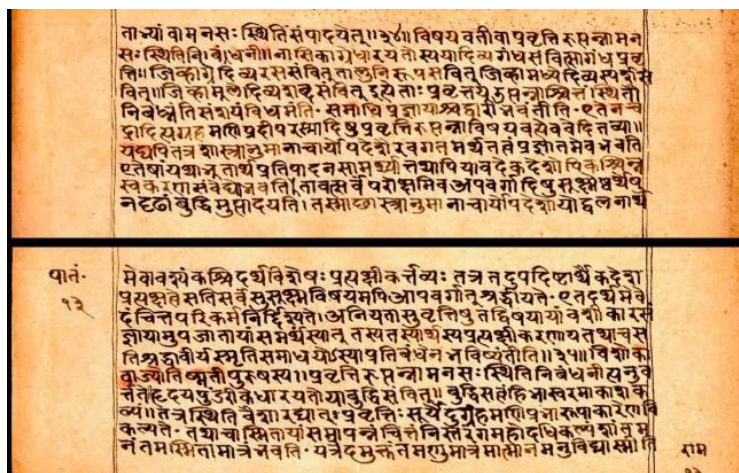 ताभ्यां वा मनसः स्थितिं संपादयेत्॥३४॥विषयवती वा प्रवृत्तिरुत्पन्ना मन
सः स्थितिनिबंधनी॥नासिकाग्रे धारयतोस्य या दिव्यगंधसंवित्सा गंधप्रवृ
त्तिः॥जिव्हाग्रे दिव्यरससंवित् तालुनि रूपसंवित् जिव्हामध्ये दिव्यस्पर्शसं
वित्॥जिव्हामूले दिव्यशब्दसंवित् इत्येताः प्रवृत्तय उत्पन्नाश्चित्तं स्थितौ
निबध्नंति संशयं विधमंति- समाधिप्रज्ञायाश्च द्वारीभवंतीति- एतेन च
द्रादित्यग्रहमणिप्रदीपरस्मादिषु प्रवृत्तिरुत्पन्ना विषयवत्येव वेदितव्या॥
यद्यपि तत्र शास्त्रानुमानाचार्योपदेशैरवगतमर्थतत्वं प्रज्ञातमेव भवति
एतेषां यथाभूतार्थप्रतिपादनसामर्थ्यात् तथापि यावदेकदेशोपि कश्चिन्न
स्वकरणसंवेद्यो भवति। तावत्सर्वं परोक्षमिव अपवर्गादिषु सूक्ष्मेष्वर्थेषु
न दृढां बुद्धिमुत्पादयति। तस्माछास्त्रानुमानाचार्योपदेशोपोद्बलनार्थ
पातं॰
१३
मेवावश्यं कश्चिदर्थविशेषः प्रत्यक्षीकर्त्तव्यः तत्र तदुपदिष्टार्थैकदेश
प्रत्यक्षत्वे सति सर्वं सुसूक्ष्मविषयमपि आपवर्गात् श्रद्धीयते- एतदर्थमेवे
दं चित्तपरिकर्म निर्द्दिश्यते। अनियतासु वृत्तिषु तद्विषयायां वशीकारसं
ज्ञायामुपजातायां समर्थं स्यात् तस्य तस्यार्थस्य प्रत्यक्षीकरणाय तथा च स
ति श्रद्धावीर्यस्मृतिसमाधयोऽस्याप्रतिबंधेन भविष्यंतीति॥३५॥विशोका
वा ज्योतिष्मती पुरुषस्य॥प्रवृत्तिरुत्पन्ना मनसः स्थितिनिबंधनीत्यनुव
र्त्तते हृदयपुंडरीके धारयतो या बुद्धिसंवित्॥बुद्धिसत्वं हि भास्वरमाकाशक
ल्पं॥तत्र स्थितिवैशारद्यात् प्रवृत्तिः सूर्येंदुग्रहमणिप्रभारूपाकारा वि
कल्पते- तथा चास्मितायां समापन्नं चित्तं निस्तरंगमहोदधिकल्पं शांतम
नंतमस्मितामात्रं भवति- यत्रेदमुक्तं तमणुमात्रमात्मानमनुविद्यास्मीति
राम